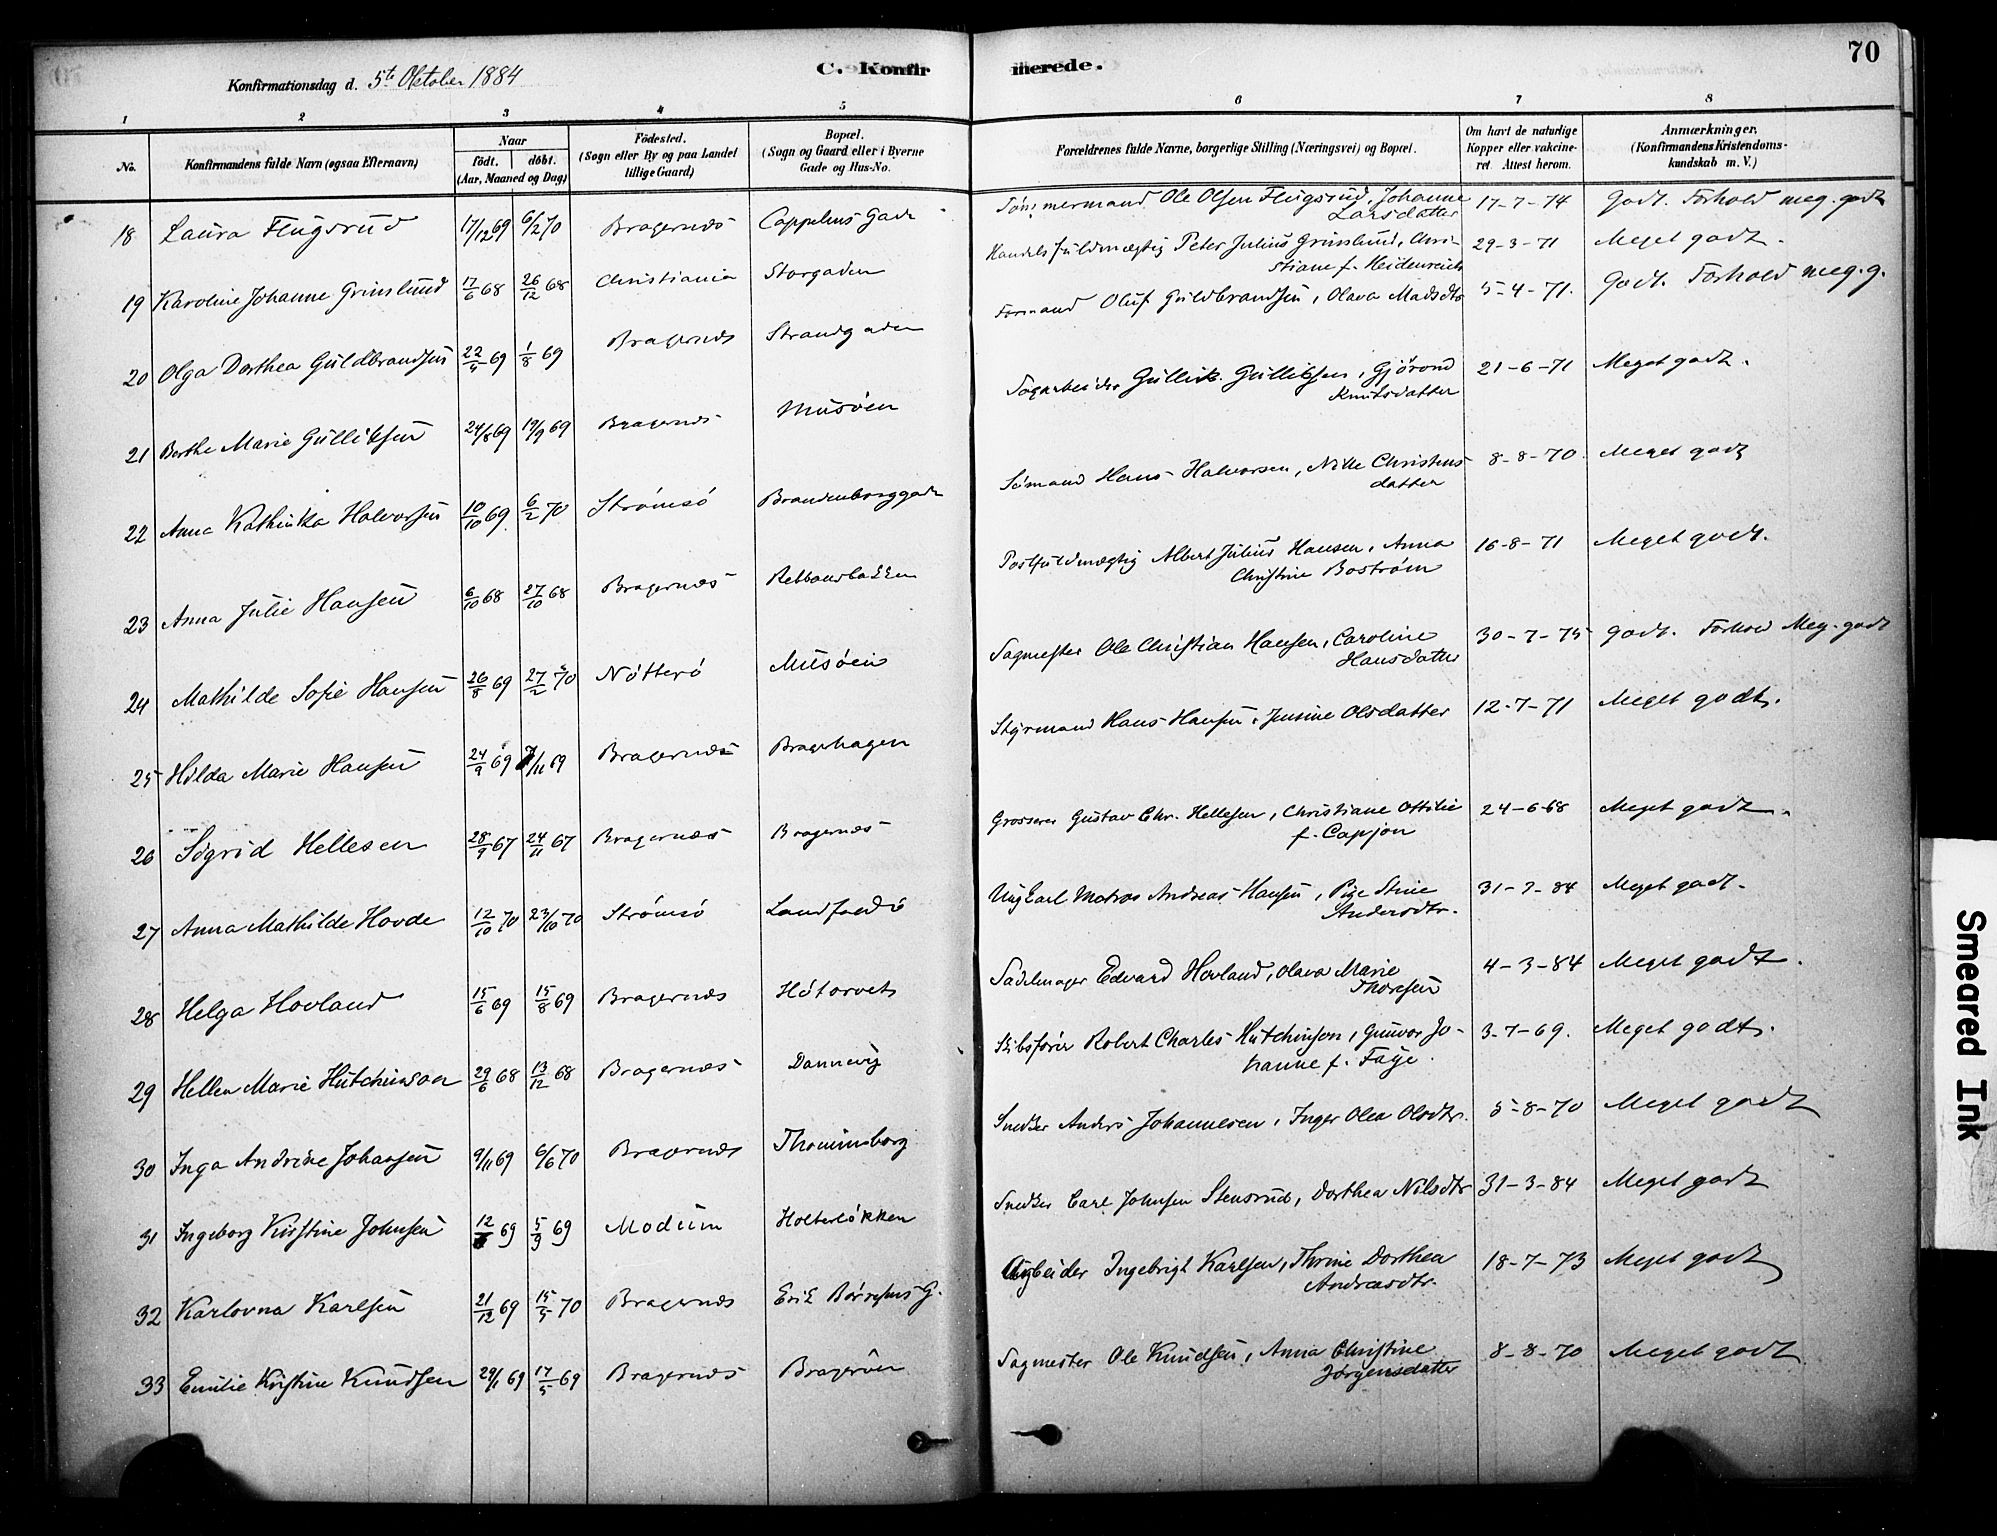 70
Konfirmationsdag d. 5te Oktober 1884
C. Konfirmerede.
1 2 3 4 5 6 7 8
No.
Konfirmandens fulde Navn (ogsaa Efternavn)
Naar
födt. döbt.
(Aar, Maaned og Dag)
Födested.
(Sogn eller By og paa Landet
tillige Gaard)
Bopæl.
(Sogn og Gaard eller i Byerne
Gade og Hus-No.
Forældrenes fulde Navne, borgerlige Stilling (Næringsvei) og Bopæl.
Om havt de naturlige
Kopper eller vakcine-
ret. Attest herom.
Anmærkninger,
(Konfirmandens Kristendoms-
kundskab m. V.)
18 Laura Flugsrud 17/12 69 6/2 70 Bragernæs Cappelens Gade Tømmermand Ole Olsen Flugsrud, Johanne Larsdatter 17-7-74 Godt. Forhold meg. godt
19 Karoline Johanne Grinslund 17/6 68 26/12 68 Christiania Storgaden Handelsfuldmægtig Peter Julius Grinslund, Christiane f. Heidenreich 29-3-71 Meget godt.
20 Olga Dorthea Guldbrandsen 22/5 69 1/8 69 Bragernæs Strandgaden Formand Oluf Guldbrandsen, Olava Madsdtr 5-4-71. Godt. Forhold meg. g.
21 Berthe Marie Gulliksen 24/8 69 19/9 69 Bragernæs Musøen Sagarbeider Gullik Gulliksen, Gjørond Knutsdatter 21-6-71 Meget godt.
22 Anna Kathinka Halvorsen 10/10 69. 6/2 70 Strømsö Brandenborggade Sömand Hans Halvorsen, Nille Christensdatter 8-8-70. Meget godt
23 Anna Julie Hansen 6/10 68 27/10 68 Bragernæs Rebbansbakken Postfuldmægtig Albert Julius Hansen, Anna Christine Boström 16-8-71 Meget godt.
24 Mathilde Sofie Hansen 26/8 69 27/2 70 Nötterö Musöen Sagmester Ole Christian Hansen, Caroline Hansdatter 30-7-75 godt. Forhold Meg. godt
25 Hilda Marie Hansen 24/9 69 7/11 69 Bragernæs Bragerhagen Styrmand Hans Hansen, Jensine Olsdatter 12-7-71 Meget godt.
26 Sigrid Hellesen 28/9 67 24/11 67 Bragernæs Bragernæs Grosserer Gustav Chr. Hellesen, Christiane Ottilie f. Capjon 24-6-68 Meget godt.
27 Anna Mathilde Hovde 12/10 70 23/10 70 Strömsö Landfaldö Ungkarl Matros Andreas Hansen, Pige Stine Andersdtr. 31-7-84 Meget godt.
28 Helga Hovland 15/6 69 15/8 69 Bragernæs Hötorvet Sadelmager Edvard Hovland, Olava Marie Thoresen 4-3-84 Meget godt.
29 Hellen Marie Hutchinson 29/6 68 13/12 68 Bragernæs Dannevig Skibsförer Robert Charles Hutchinson, Gunvor Johanne f. Faye. 3-7-69. Meget godt.
30 Inga Andrine Johansen 9/11 69 6/6 70 Bragernæs Thommsborg Snedker Anders Johannesen, Inger Olea Olsdtr. 5-8-70 Meget godt
31 Ingeborg Kristine Johnsen 12/ 69 5/9 69 Modum Holterløkken Snedker Carl Johnsen Stensrud, Dorthea Nilsdtr 31-3-84 Meget godt
32 Karlovna Karlsen 21/12 69 15/5 70 Bragernæs Erik Börresens G. Arbeider Ingebrigt Karlsen, Thrine Dorthea Andreasdtr. 18-7-73 Meget godt
33 Emilie Kristine Knudsen 29/1 69 17/5 69 Bragernæs Bragerøen Sagmester Ole Knudsen, Anna Christine Jörgensdatter 8-8-70 Meget godt
Smeared Ink